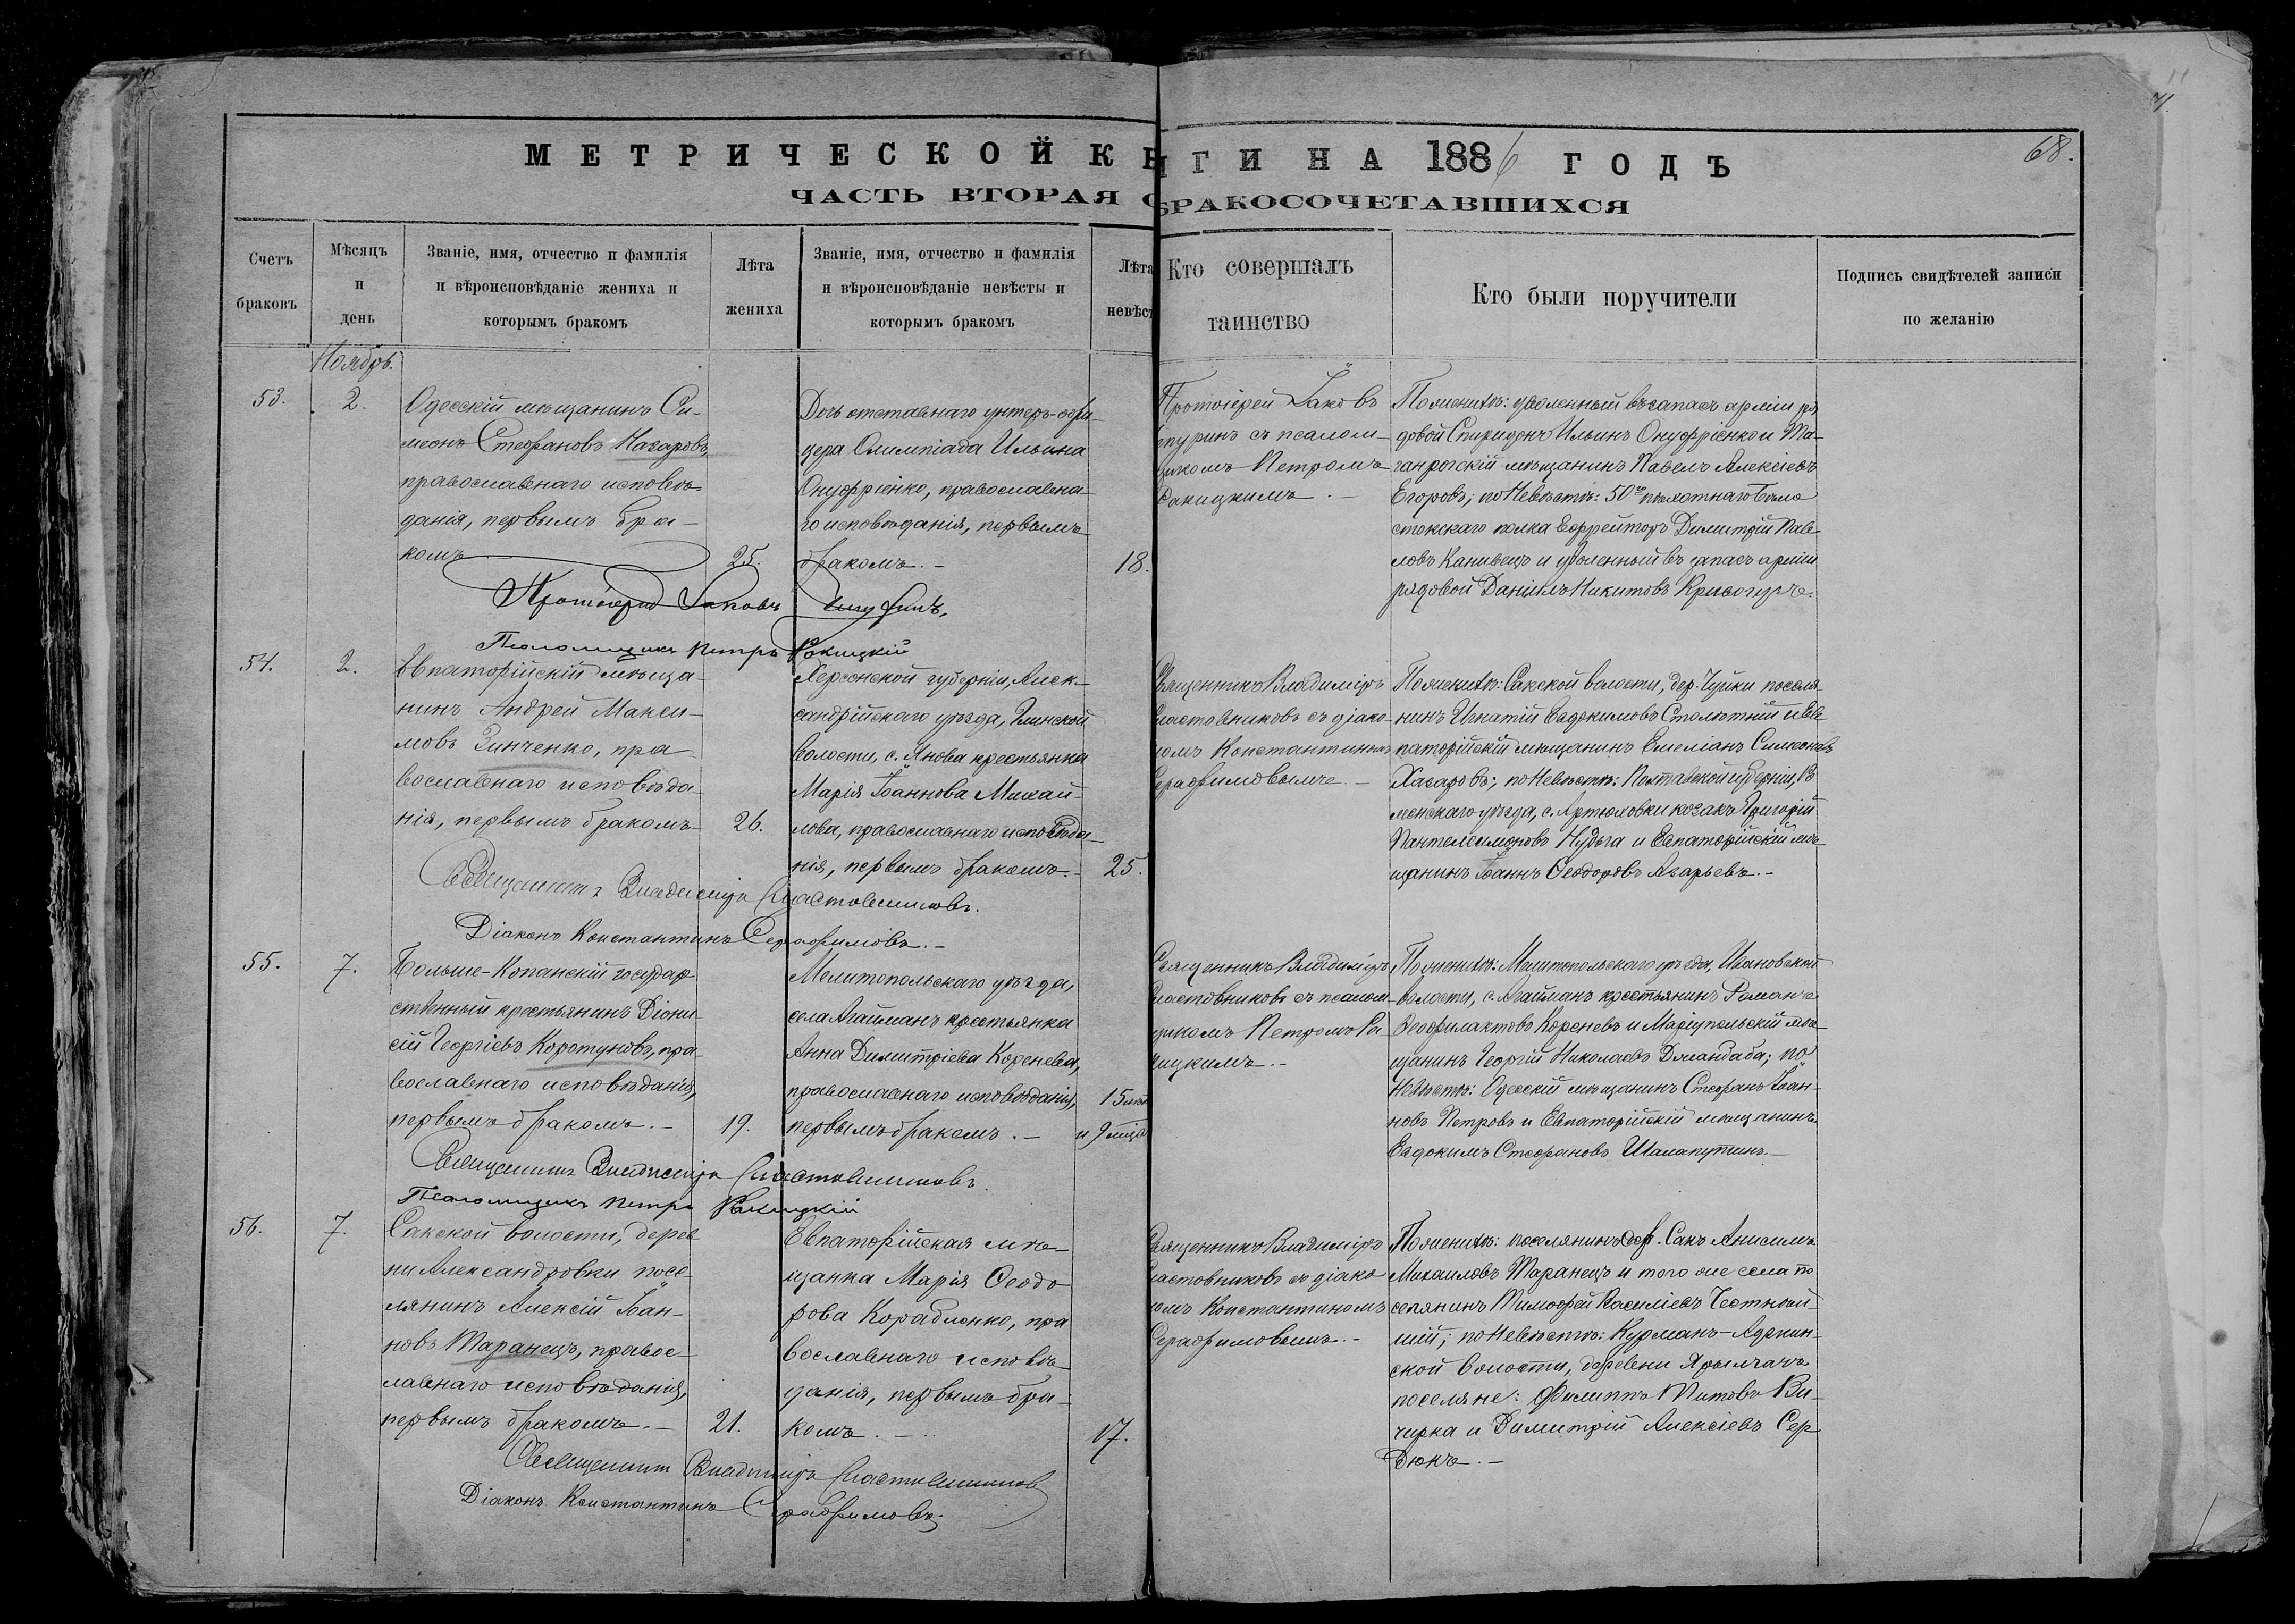 68.
МЕТРИЧЕСКОЙ КНИГИ НА 1886 ГОДЪ
ЧАСТЬ ВТОРАЯ О БРАКОСОЧЕТАВШИХСЯ
Счетъ
браковъ
Мѣсяцъ
и
день
Званіе, имя, отчество и фамилія
и вѣроисповѣданіе жениха и
которымъ бракомъ
Лѣта
жениха
Званіе, имя, отчество и фамилія
и вѣроисповѣданіе невѣсты и
которымъ бракомъ
Лѣта
невѣст
Кто совершалъ
таинство
Кто были поручители
Подпись свидѣтелей записи
по желанію
Ноябрь.
53.
2.
Одесскій мѣщанинъ Си-
меонъ Стефановъ Назаровъ,
православнаго исповѣ-
данія, первымъ бра-
комъ
25.
Дочь отставнаго унтеръ-офи-
цера Олимпіада Ильина
Онуфріенко, православна-
го исповѣданія, первымъ
бракомъ. -
18.
Протоіерей Іаковъ
Чепуринъ съ псалом-
щикомъ Петромъ
Ракицкимъ. -
По женихѣ: уволенный въ запасъ арміи ря-
довой Спиридонъ Ильинъ Онуфріенко и Та-
ганрогскій мѣщанинъ Павелъ Алексіевъ
Егоровъ; по невѣстѣ: 50го пѣхотнаго Бѣло-
стокскаго полка Ефрейторъ Димитрій Пав-
ловъ Канивецъ и уволенный въ запасъ арміи
рядовой Даніилъ Никитовъ Кривогузъ.
Протоіерей Іаковъ Чепуринъ.
Псаломщикъ Петръ Ракицкій
54.
2.
Евпаторійскій мѣща-
нинъ Андрей Макси-
мовъ Зинченко, пра-
вославнаго исповѣда-
нія, первымъ бракомъ
26.
Херсонской губерніи, Алек-
сандрійскаго уѣзда, Глинской
волости, с. Янова крестьянка
Марія Іоаннова Михай-
лова, православнаго исповѣда-
нія, первымъ бракомъ. -
25.
Священникъ Владиміръ
Сластовниковъ съ діако-
номъ Константиномъ
Серафимовымъ. -
По женихѣ: Сакской волости, дер. Чуйки поселя-
нинъ Игнатій Евдокимовъ Столѣтній и Ев-
паторійскій мѣщанинъ Емеліанъ Симеоновъ
Хасаровъ; по невѣстѣ: Полтавской губерніи, Ро-
менскаго уѣзда, с. Артюховки козакъ Григорій
Пантелеимоновъ Нудьга и Евпаторійскій мѣ-
щанинъ Іоаннъ Ѳеодоровъ Азарьевъ. -
Священникъ Владиміръ Сластовниковъ.
Діаконъ Константинъ Серафимовъ. -
55.
7.
Больше-Копанскій государ-
ственный крестьянинъ Діони-
сій Георгіевъ Коротуновъ, пра-
вославнаго исповѣданія,
первымъ бракомъ. -
19.
Мелитопольскаго уѣзда,
села Агайманъ крестьянка
Анна Димитріева Коренева,
православнаго исповѣданія,
первымъ бракомъ. -
15 лѣт
и 9 мѣс
Священникъ Владиміръ
Сластовниковъ съ псалом-
щикомъ Петромъ Ра-
кицкимъ. -
По женихѣ: Мелитопольскаго уѣзда, Ивановской
волости, с. Агайманъ крестьянинъ Романъ
Ѳеофилактовъ Кореневъ и Маріупольскій мѣ-
щанинъ Георгій Николаевъ Джандаба; по
невѣстѣ: Одесскій мѣщанинъ Стефанъ Іоан-
новъ Петровъ и Евпаторійскій мѣщанинъ
Евдокимъ Стефановъ Шалапутинъ. -
Священникъ Владиміръ Сластовниковъ.
Псаломщикъ Петръ Ракицкій
56.
7.
Сакской волости, дерев-
ни Александровки посе-
лянинъ Алексій Іоан-
новъ Таранецъ, правос-
лавнаго исповѣданія,
первымъ бракомъ. -
21.
Евпаторійская мѣ-
щанка Марія Ѳеодо-
рова Корабленко, пра-
вославнаго исповѣ-
данія, первымъ бра-
комъ. -
17.
Священникъ Владиміръ
Сластовниковъ съ діако-
номъ Константиномъ
Серафимовымъ. -
По женихѣ: поселянинъ дер. Сакъ Анисимъ
Михаиловъ Таранецъ и того же села по-
селянинъ Тимофей Василіевъ Честнѣй-
шій; по невѣстѣ: Курманъ-Аджин-
ской волости, деревни Ярылчакъ
поселяне: Филиппъ Титовъ Ви-
чирка и Димитрій Алексіевъ Сер-
дюкъ. -
Священникъ Владиміръ Сластовниковъ
Діаконъ Константинъ Серафимовъ.